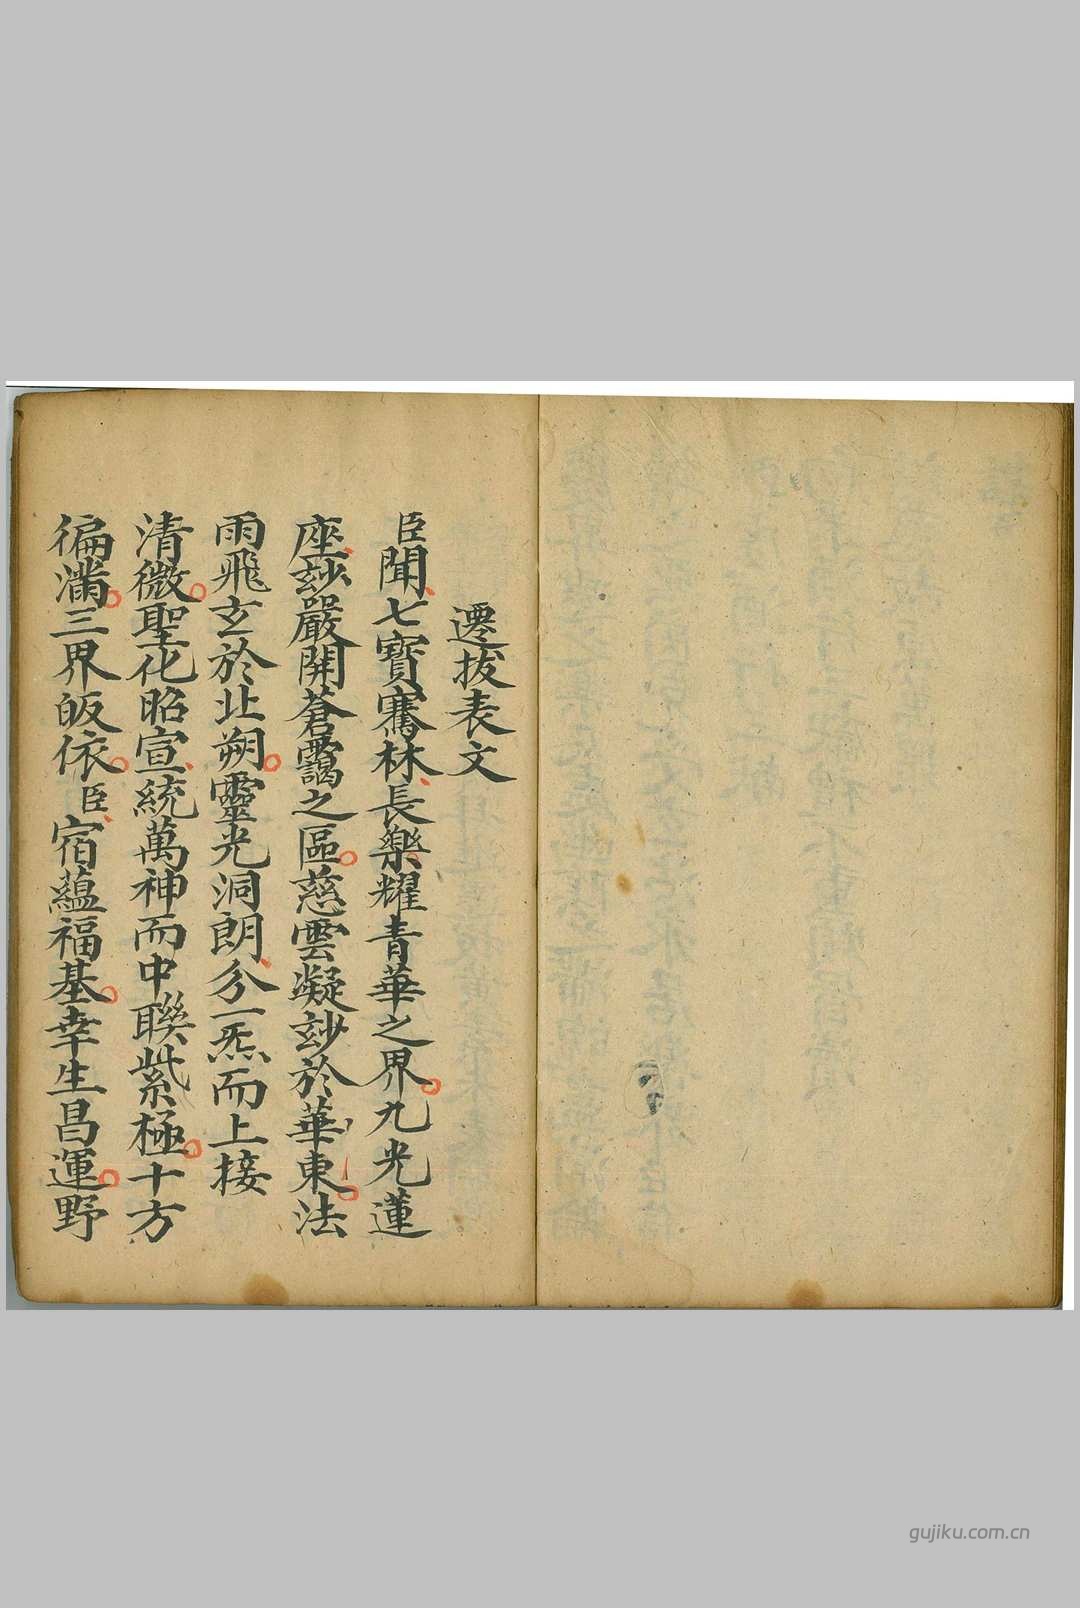 遷拔表文
臣聞七寶騫林長樂耀青華之界九光蓮
座玅嚴開蒼靄之區慈雲凝玅於華東法
雨飛玄於北朔靈光洞朗分一炁而上接
清微聖化昭宣統萬神而中聯紫極十方
徧滿三界皈依臣宿蘊福基幸生昌運野
gujiku.com.cn